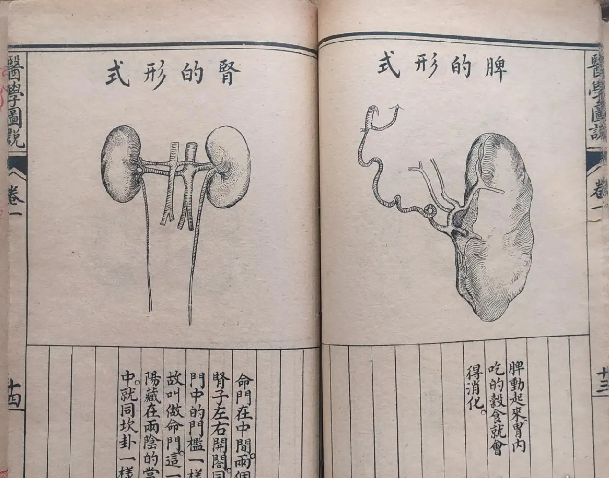 醫學圖說
卷一
十三
脾的形式
脾動起來胃內
吃的穀食就會
得消化。
腎的形式
命門在中間。兩個
腎子左右開闔。同
門中的門檻一樣
故叫做命門。這一
陽藏在兩陰的當
中。就同坎卦一樣
醫學圖說
卷一
十四